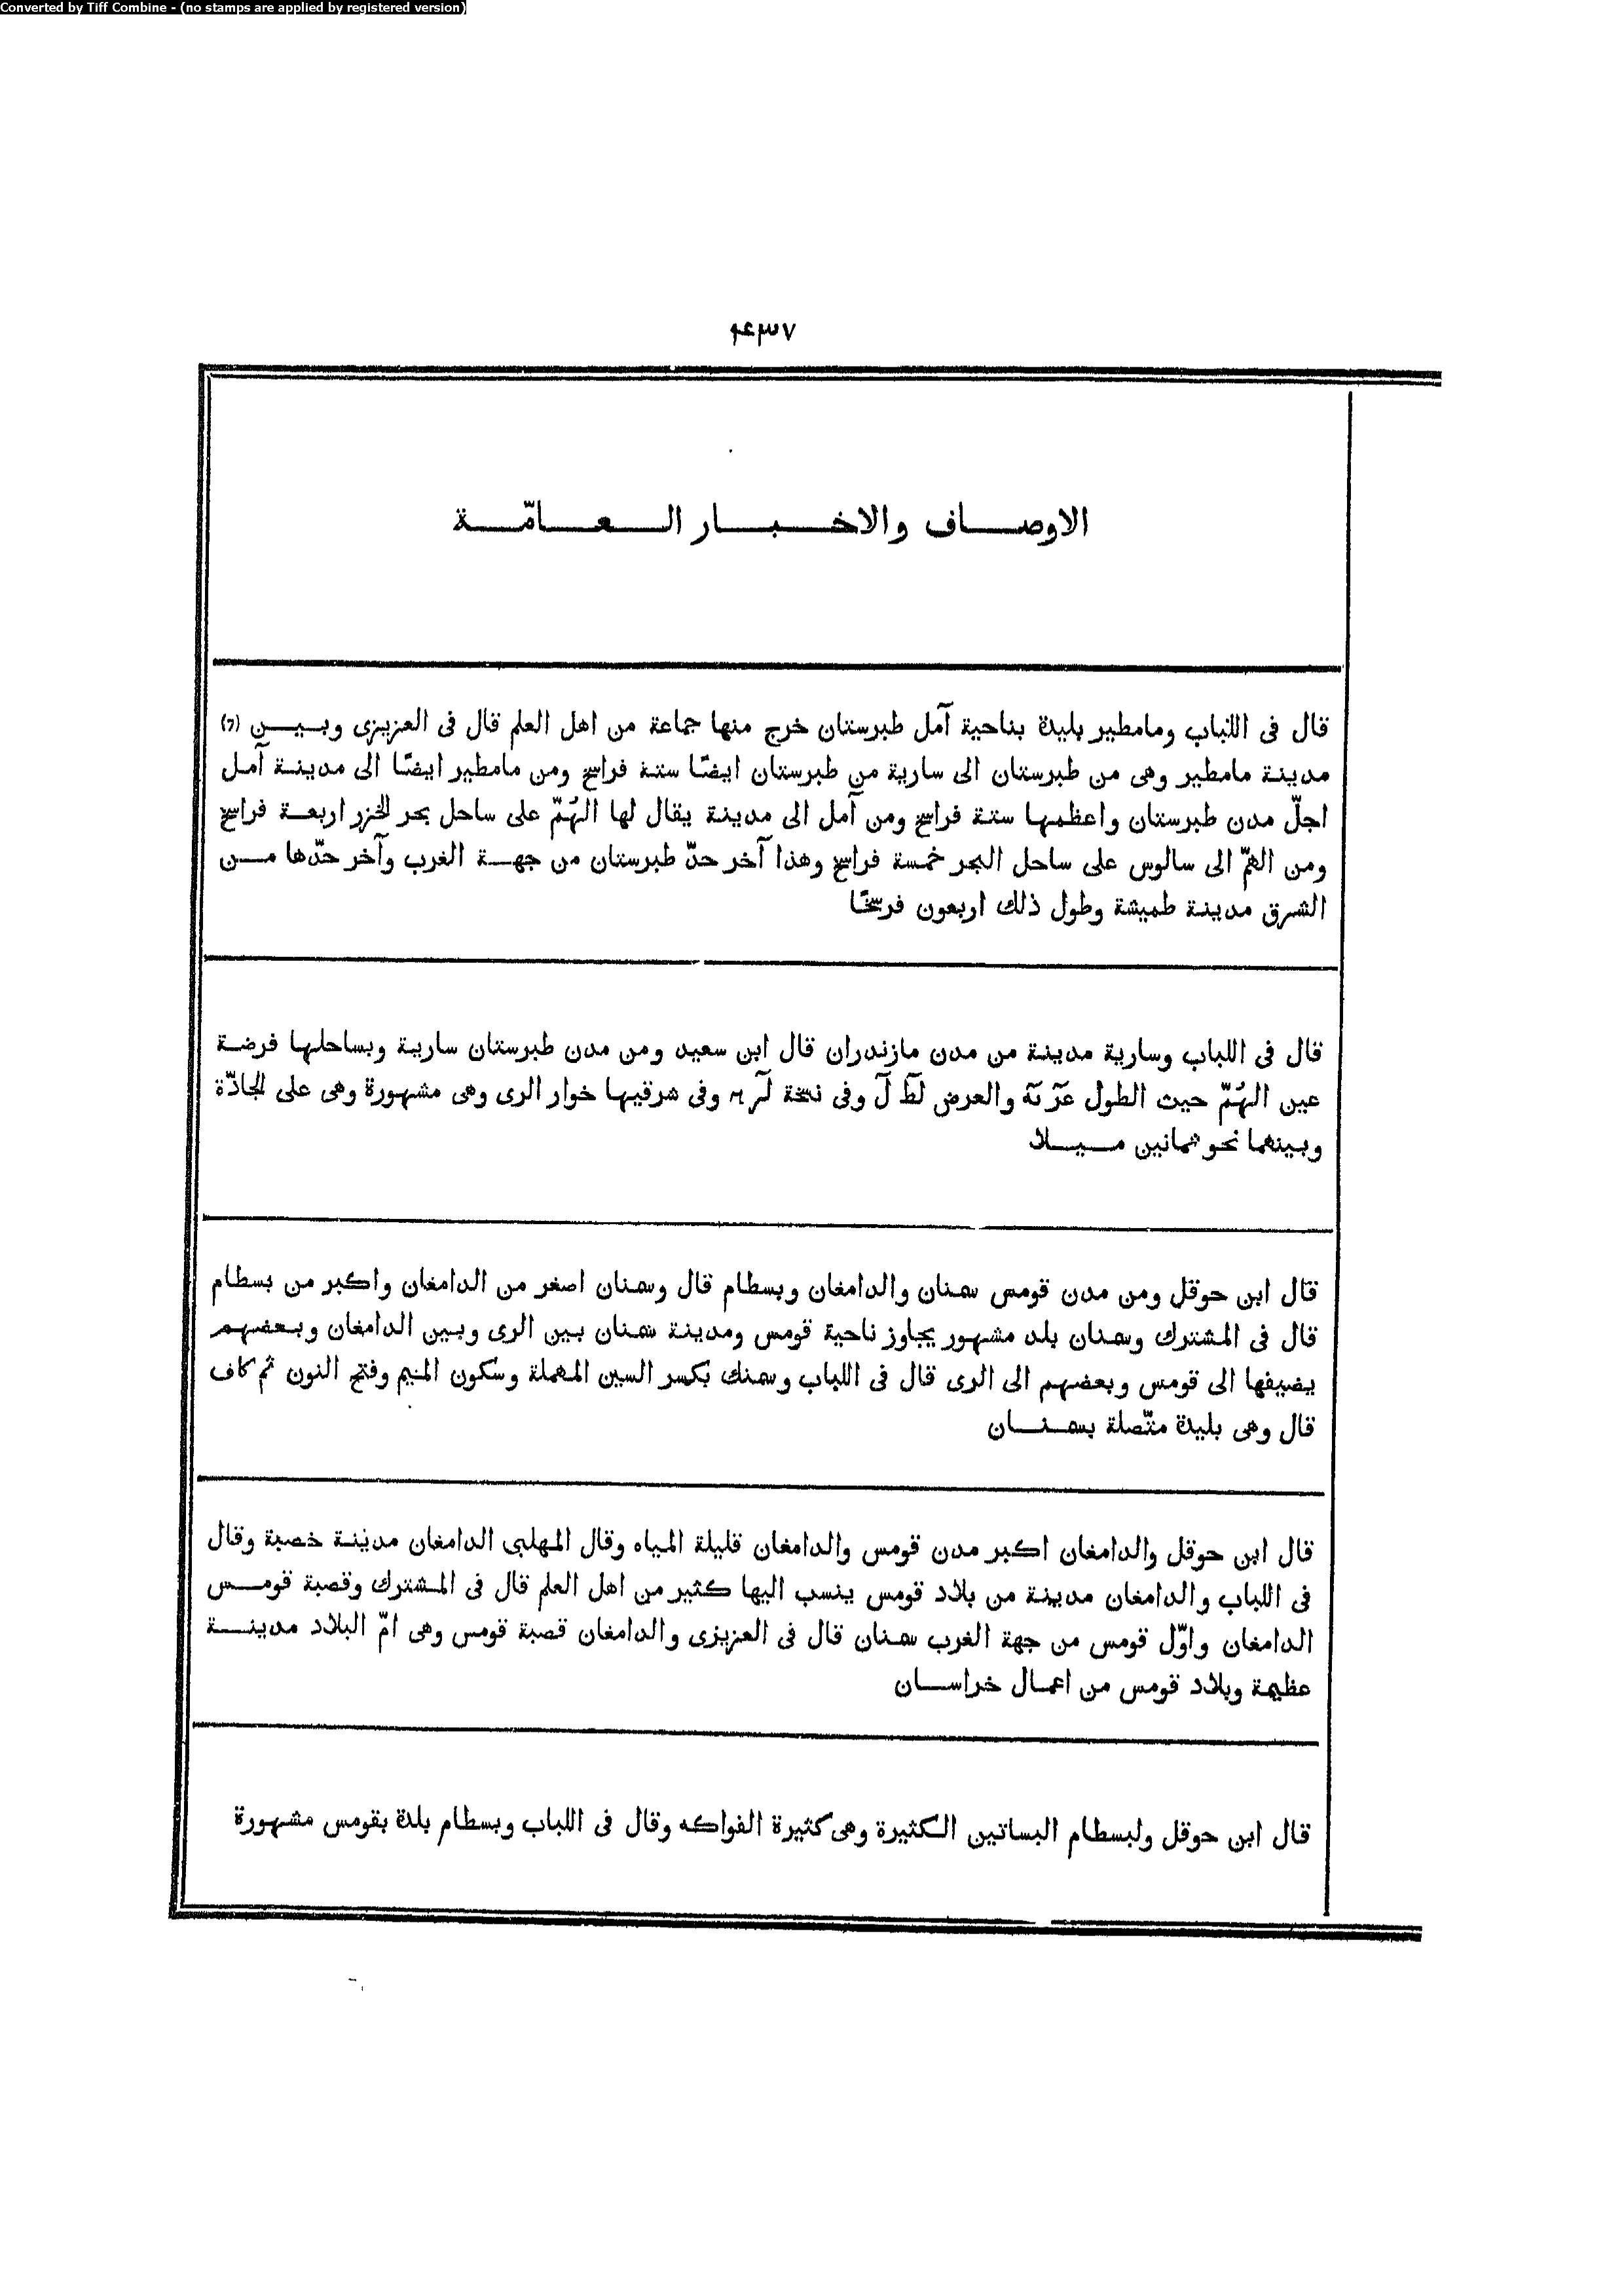 Converted by Tiff Combine - (no stamps are applied by registered version)
۴۳۷
الاوصاف والاخبار العامّة
قال فى اللباب ومامطير بليدة بناحية آمل طبرستان خرج منها جماعة من اهل العلم قال فى العزيزى وبين
مدينة مامطير وهى من طبرستان الى سارية من طبرستان ايضًا ستة فراسخ ومن مامطير ايضًا الى مدينة آمل
اجلّ مدن طبرستان واعظمها ستة فراسخ ومن آمل الى مدينة يقال لها الهُمّ على ساحل بحر الخزر اربعة فراسخ
ومن الهمّ الى سالوس على ساحل البحر خمسة فراسخ وهذا آخر حدّ طبرستان من جهة الغرب وآخر حدّها من
الشرق مدينة طميشة وطول ذلك اربعون فرسخًا
قال فى اللباب وسارية مدينة من مدن مازندران قال ابن سعيد ومن مدن طبرستان سارية وبساحلها فرضة
عين الهُمّ حيث الطول والعرض وفى نسخة وفى شرقيها خوار الرى وهى مشهورة وهى على الجادّة
وبينهما نحو ثمانين ميلا
قال ابن حوقل ومن مدن قومس سمنان والدامغان وبسطام قال وسمنان اصغر من الدامغان واكبر من بسطام
قال فى المشترك وسمنان بلد مشهور يجاوز ناحية قومس ومدينة سمنان بين الرى وبين الدامغان وبعضهم
يضيفها الى قومس وبعضهم الى الرى قال فى اللباب وسمنك بكسر السين المهملة وسكون الميم وفتح النون ثم كاف
قال وهى بليدة متّصلة بسمنان
قال ابن حوقل والدامغان اكبر مدن قومس والدامغان قليلة المياه وقال المهلبى الدامغان مدينة خصبة وقال
فى اللباب والدامغان مدينة من بلاد قومس ينسب اليها كثير من اهل العلم قال فى المشترك وقصبة قومس
الدامغان واوّل قومس من جهة الغرب سمنان قال فى العزيزى والدامغان قصبة قومس وهى امّ البلاد مدينة
عظيمة وبلاد قومس من اعمال خراسان
قال ابن حوقل ولبسطام البساتين الكثيرة وهى كثيرة الفواكه وقال فى اللباب وبسطام بلدة بقومس مشهورة